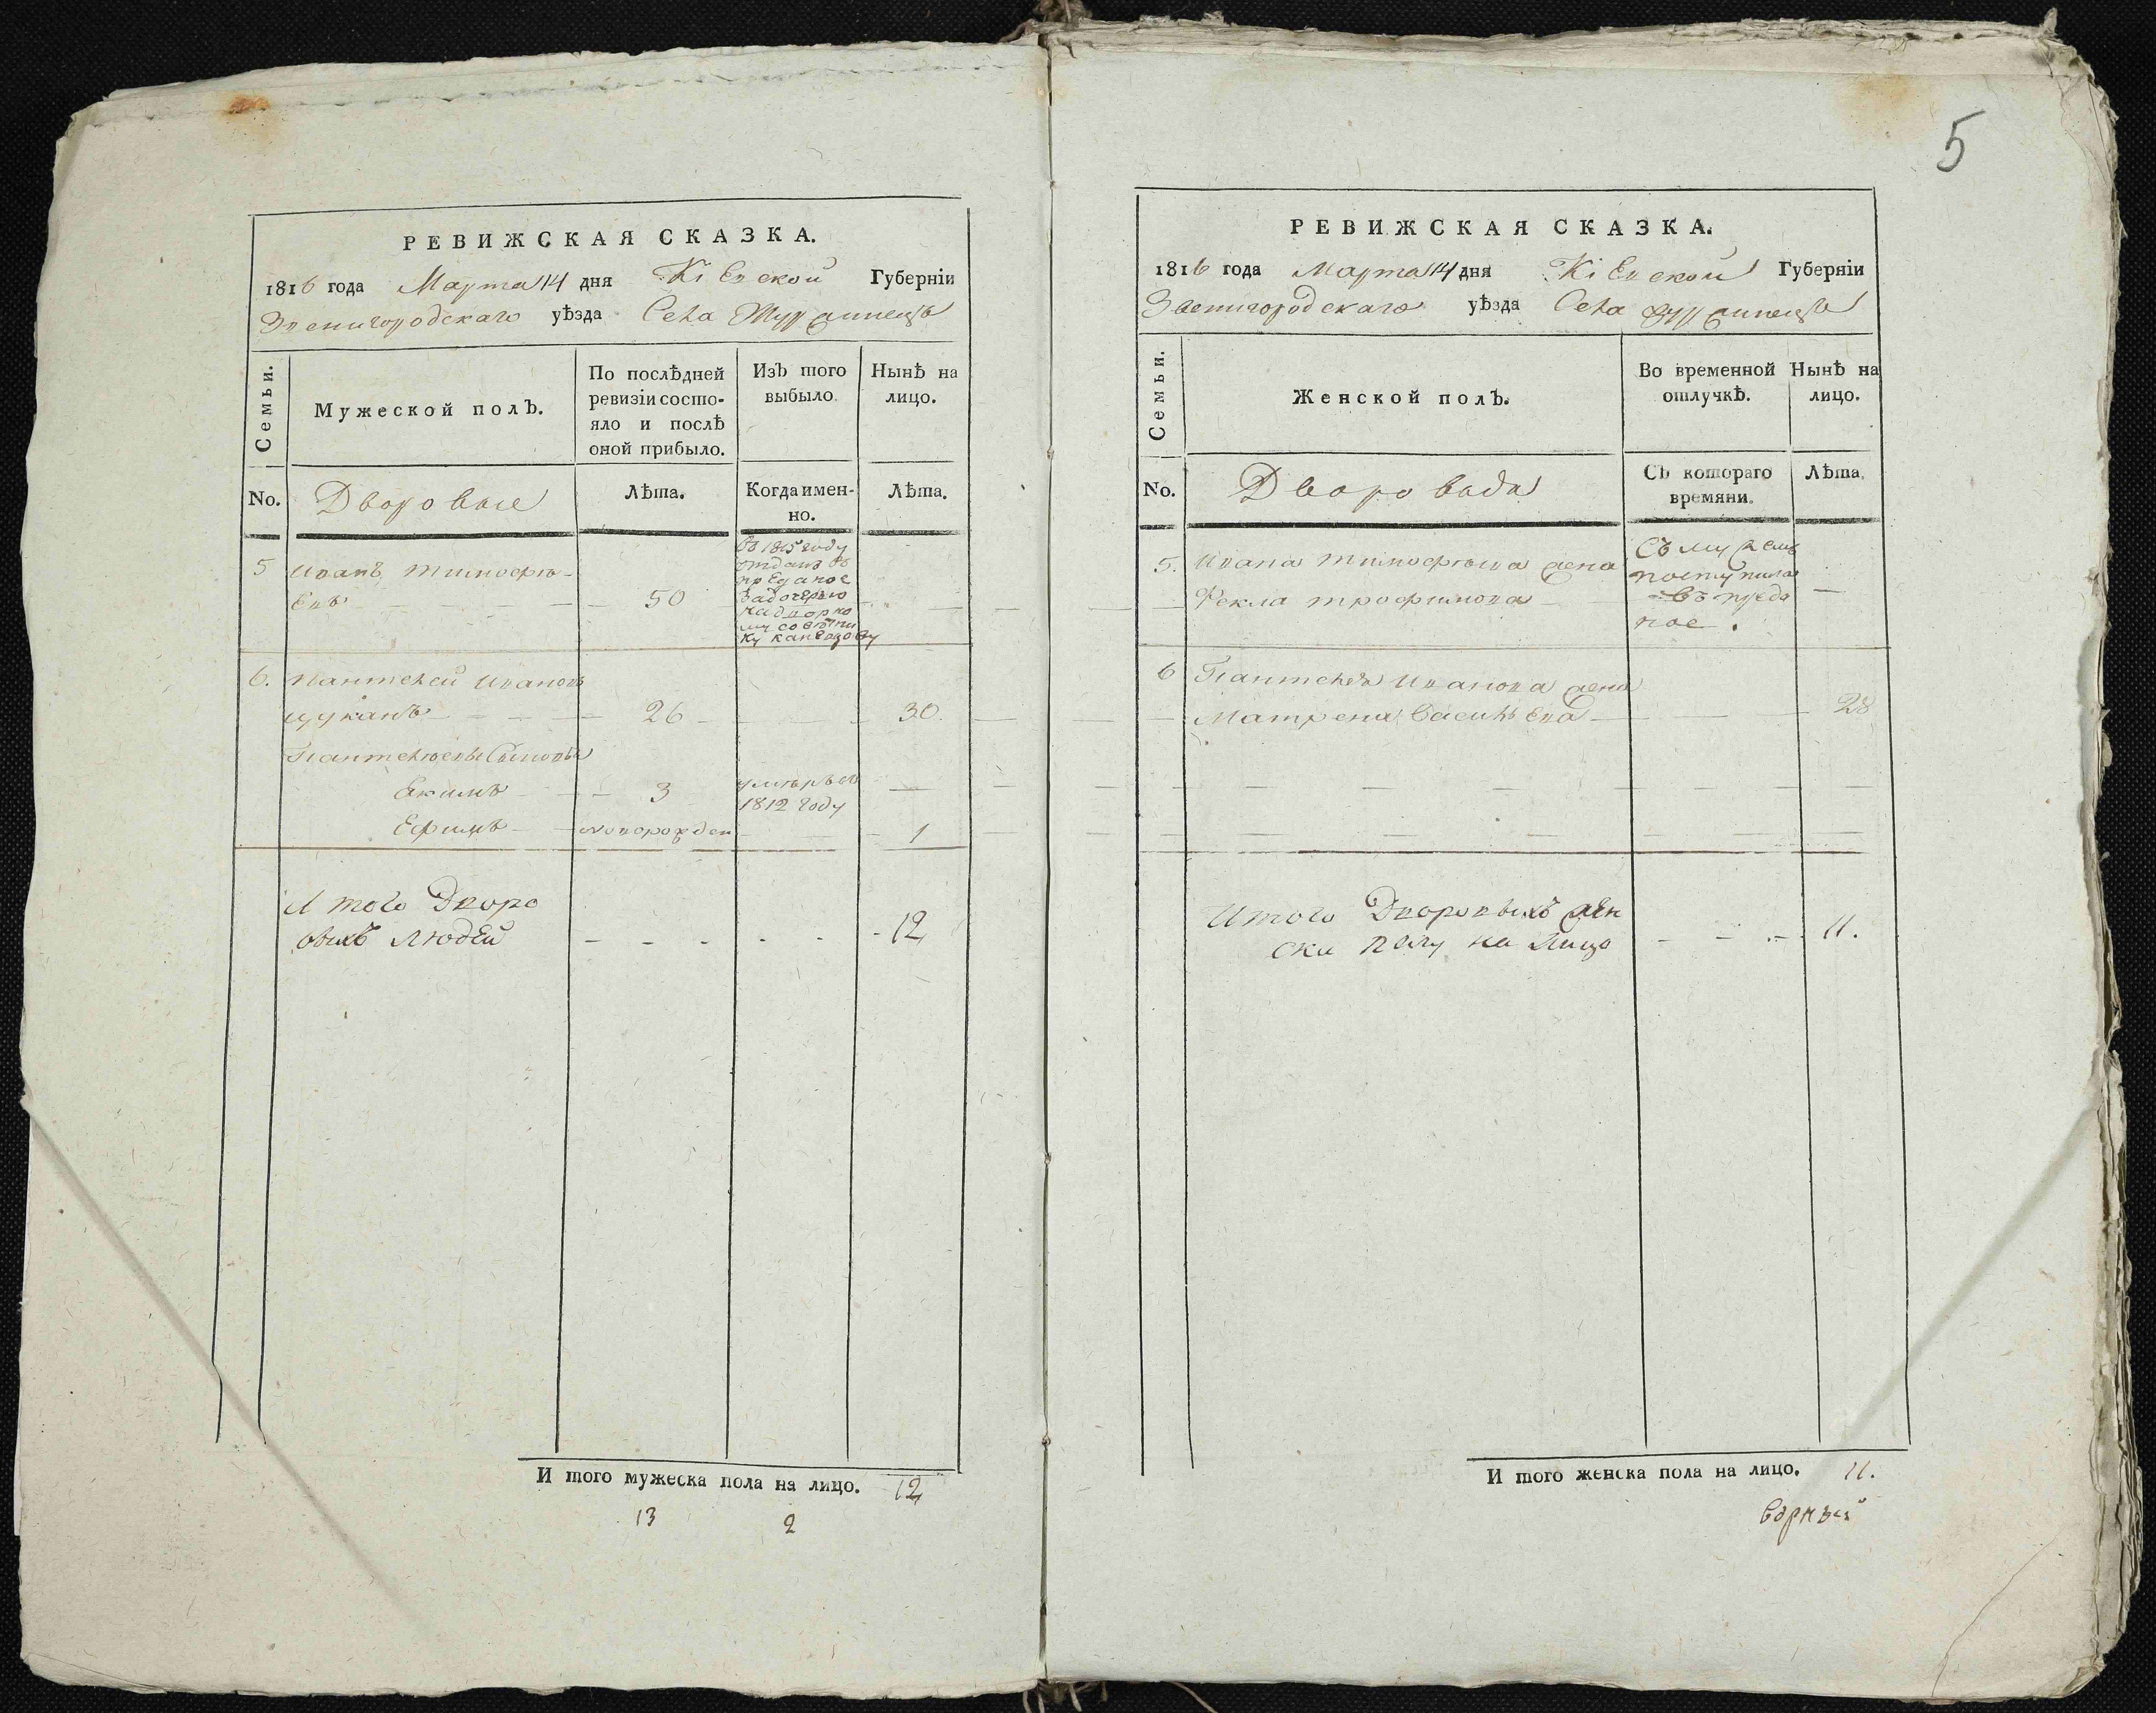 5
РЕВИЖСКАЯ СКАЗКА.
1816 года Марта 14 дня Кіевской Губерніи
Звенигородскаго уѣзда Села
Семьи.
Мужеской полъ.
По послѣдней
ревизіи состо-
яло и послѣ
оной прибыло.
Изъ того
выбыло.
Нынѣ на
лицо.
No.
Дворовые
Лѣта.
Когда имен-
но.
Лѣта.
5 Иванъ Тимофѣ-
евъ 50
въ 1815 году
отданъ въ
преданое
за дочерью
надворно
му совѣтни
ку
6. Пантелей Ивановъ
цуканъ 26 30.
Пантелѣевы Сыновья
Екимъ 3
умѣръ въ
1812 году
Ефимъ новорожден 1
И того Дворо
овыхъ людей 12
И того мужеска пола на лицо. 12
13 2
РЕВИЖСКАЯ СКАЗКА.
1816 года Марта 14 дня Кіевской Губерніи
Звенигородскаго уѣзда Села
Семьи.
Женской полъ.
Во временной
отлучкѣ.
Нынѣ на
лицо.
No.
Съ котораго
времяни.
Лѣта.
5. Ивана Тимофѣева жена
Фекла Трофимова
Съ мужемъ
поступила
въ преда
ное.
6 Пантелея Иванова жена
Матрена Васильева 28
Итого Дворовыхъ жен
ска полу на лицо 11.
И того женска пола на лицо. 11.